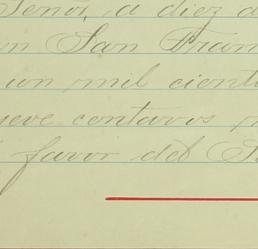 Señor, a diez d
n San Fran
un mil cient
ueve centavos
favor del S